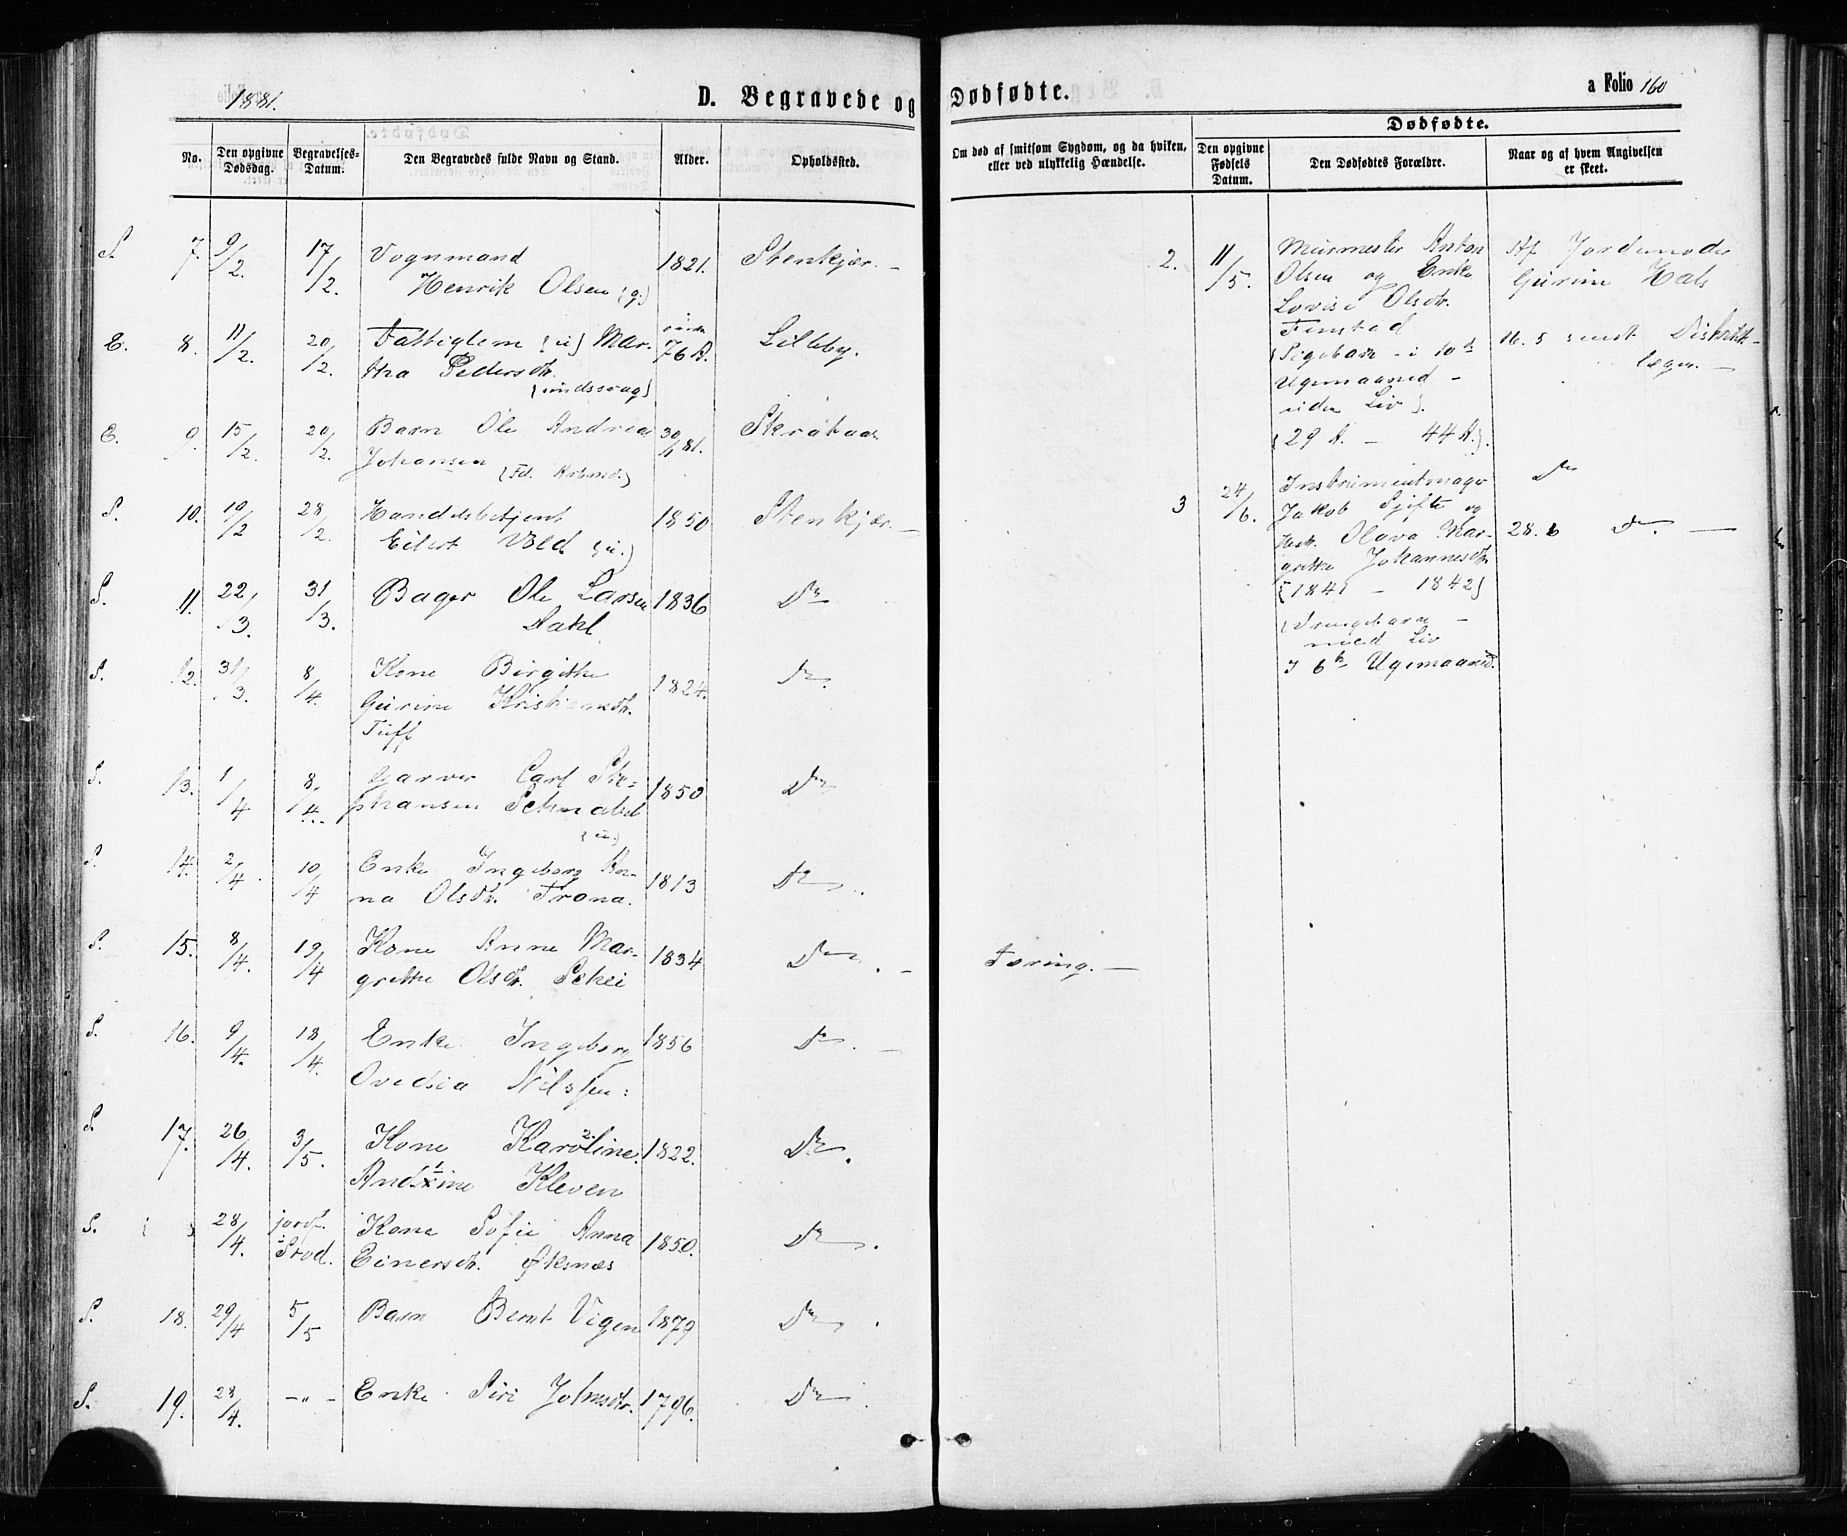 1881.
D. Begravede og Dødfødte.
a Folio 160
No.
Den opgivne Dødsdag.
Begravelses-Datum.
Den Begravedes fulde Navn og Stand.
Alder.
Opholdssted.
Om død af smitsom Sygdom, og da hvilken,
eller ved ulykkelig Hændelse.
Dødfødte.
Den opgivne Fødsels Datum.
Den Dødfødtes Forældre.
Naar og af hvem Angivelsen
er skeet.
S. 7. 9/2. 17/2. Vognmand 1821. Stenkjær. -
Henrik Olsen {g:}
E. 8. 11/2. 20/2. Fattiglem {u} Mar- 76 A. Lilleby.
tha Pedersdtr.
{sindssvag}
E. 9. 15/2. 20/2. Barn Ole Andreas 30/1 81.
Johansen
S. 10. 19/2 28/2. Handelsbetjent 1850 Stenkjær. -
Eilert Vold {u.}
S. 11. 22/3. 31/3. Bager Ole Larsen 1836 Do
Dahl
S. 12. 31/3. 8/4. Kone Birgitte 1824. Do.
Gurine Kristiansdtr.
Tuff
S. 13. 1/4 8/4. Garver Carl Ste- 1850 Do
phansen Schnabel
{u.}
S. 14. 2/4. 10/4 Enke Ingeborg An- 1813 Do.
na Olsdtr. Trana.
S. 15. 8/4. 19/4 Kone Anne Mar- 1834 Do. - Tæring. -
grethe Olsdtr. Schei
S. 16. 9/4. 18/4. Enke Ingeborg 1856 Do. -
Ovedia Nilssen:
S. 17. 26/4. 3/5. Kone Karoline 1822. Do.
Kleven
S. { } 28/4. jordf. i Frod. Kone Sofie Anna 1850. Do.
Einersdtr. Øksnæs
S. 18. 29/4 5/5 Barn Bernt Vigen 1879 Do.
S. 19. 28/4. -"- Enke Siri Johnsdtr. 1796. Do.
2. 11/5. Murmester Anton Af Jordemoder
Olsen og Enke Gurine Hals
Lovise Olsdtr.
Finstad
{Pigebarn - i 10de 16. 5 samt Distrikts-
Ugemaaned - lægen. -
uden Liv}.
{29 A. - 44 A.}.
3 24/6. Instrumentmager Do
Jakob Sjifte og
Hstr. Olava Mar- 28. 6 Do. -
grethe Johannesdtr.
{1841 - 1842}
{Drengebarn -
med Liv
I 6te Ugemaaned.